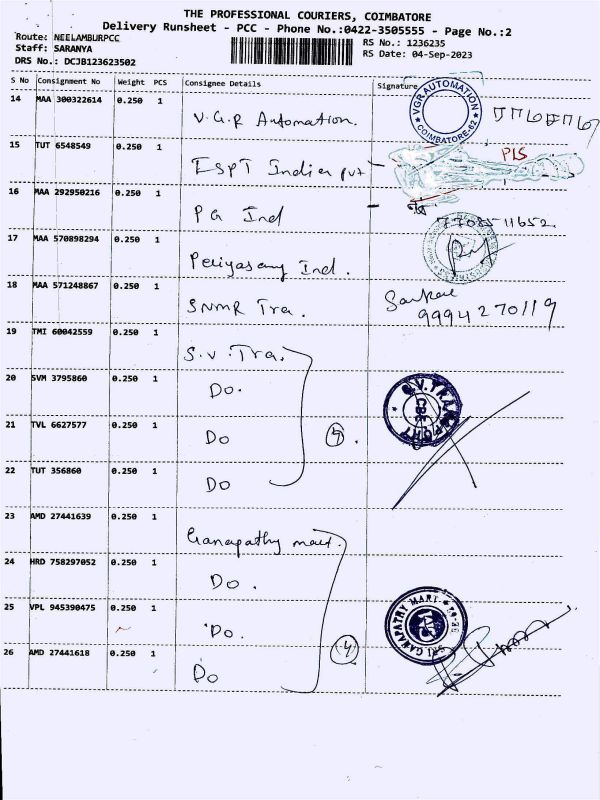 THE PROFESSIONAL COURIERS, COIMBATORE
Delivery Runsheet - PCC - Phone No.:0422-3505555 - Page No.:2
Route: NEELAMBURPCC
Staff: SARANYA
DRS No.: DCJB123623502
RS No.: 1236235
RS Date: 04-Sep-2023
S No Consignment No Weight PCS Consignee Details Signature
14 MAA 300322614 0.250 1 V.G.R Automation.
VGR AUTOMATION COIMBATORE-62
15 TUT 6548549 0.250 1 ESPT India pvt
PIS
16 MAA 292950216 0.250 1 PG Ind
7708511652.
17 MAA 570898294 0.250 1 Periyasamy Ind.
18 MAA 571248867 0.250 1 SNMR Tra.
Sankar
9994270119
19 TMI 60042559 0.250 1 S.V.Tra.
20 SVM 3795860 0.250 1 Do.
S.V.TRANSPORT CBE
21 TVL 6627577 0.250 1 Do
22 TUT 356860 0.250 1 Do
23 AMD 27441639 0.250 1 Ganapathy mart.
24 HRD 758297052 0.250 1 Do.
25 VPL 945390475 0.250 1 Do.
SRI GANAPATHY MART
26 AMD 27441618 0.250 1 Do
4